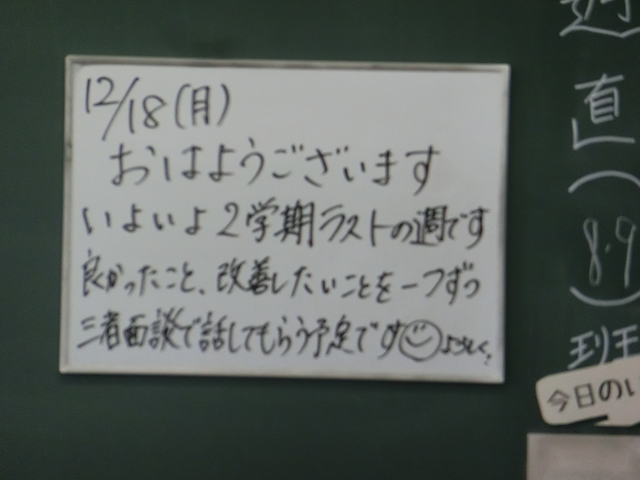 12/18(月)
おはようございます
いよいよ2学期ラストの週です
良かったこと、改善したいことを一つずつ
三者面談で話してもらう予定です
よろしく!
週
直
(
8.9
)
班
今日のい